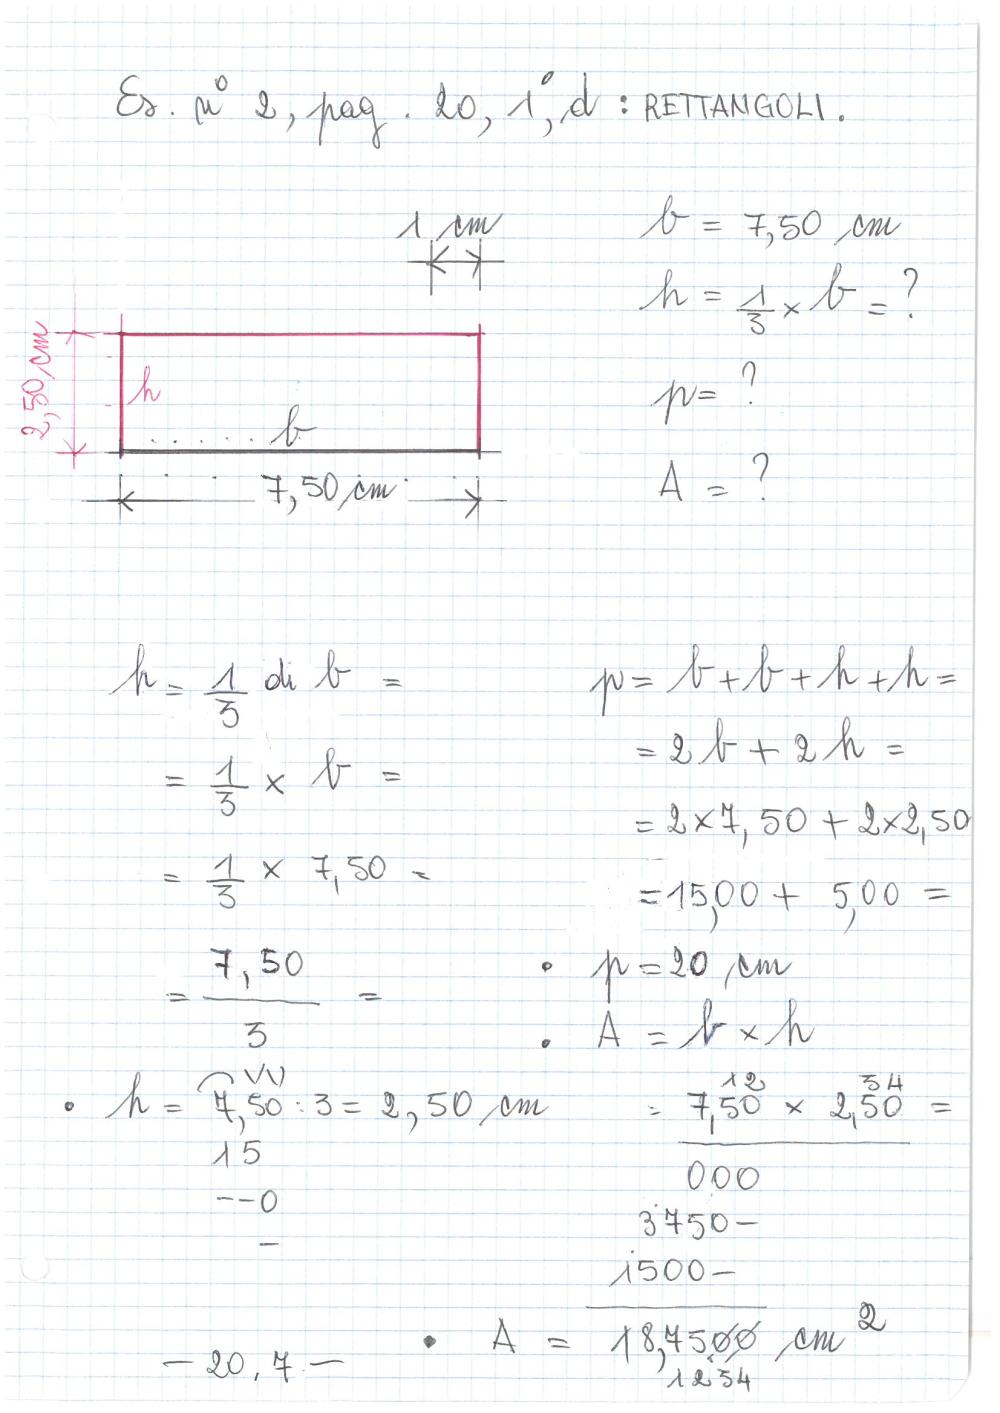 Es. n° 2, pag. 20, 1°, d : RETTANGOLI.
1 cm
b = 7,50 cm
h = 1/3 × b = ?
p = ?
A = ?
2,50 cm
h
b
7,50 cm
h = 1/3 di b =
= 1/3 × b =
= 1/3 × 7,50 =
= 7,50/3 =
• h = 7,50 : 3 = 2,50 cm
15
--0
-
p = b + b + h + h =
= 2b + 2h =
= 2×7,50 + 2×2,50
= 15,00 + 5,00 =
• p = 20 cm
• A = b × h
12 34
= 7,50 × 2,50 =
000
3750-
1500-
• A = 18,7500 cm²
1234
- 20.7 -